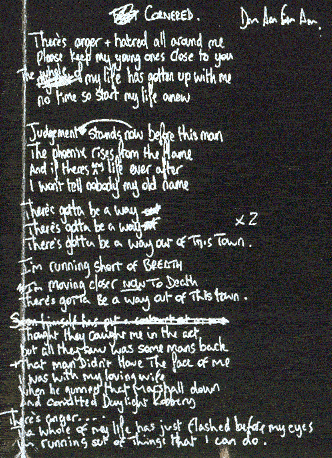 CORNERED. Dm Am Em Am.
There's anger + hatred all around me
Please keep my young ones close to you
The whole of my life has gotten up with me
no time so start my life anew
Judgement stands now before this man
The phoenix rises from the flame
And if there's my life ever after
I won't tell nobody my old name
There's gotta be a way
There's gotta be a way x2
There's gotta be a way out of This Town.
I'm running short of BREATH
I'm moving closer NOW To Death
There's gotta Be a way out of This town.
thought they caught me in the act
but all they saw was some mans back
that man Didn't Have The face of me
I was with my loving wife
when he gunned that Marshall down
and comitted Daylight Robbery
There's anger....
The whole of my life has just flashed before my eyes
I'm running out of things that I can do.